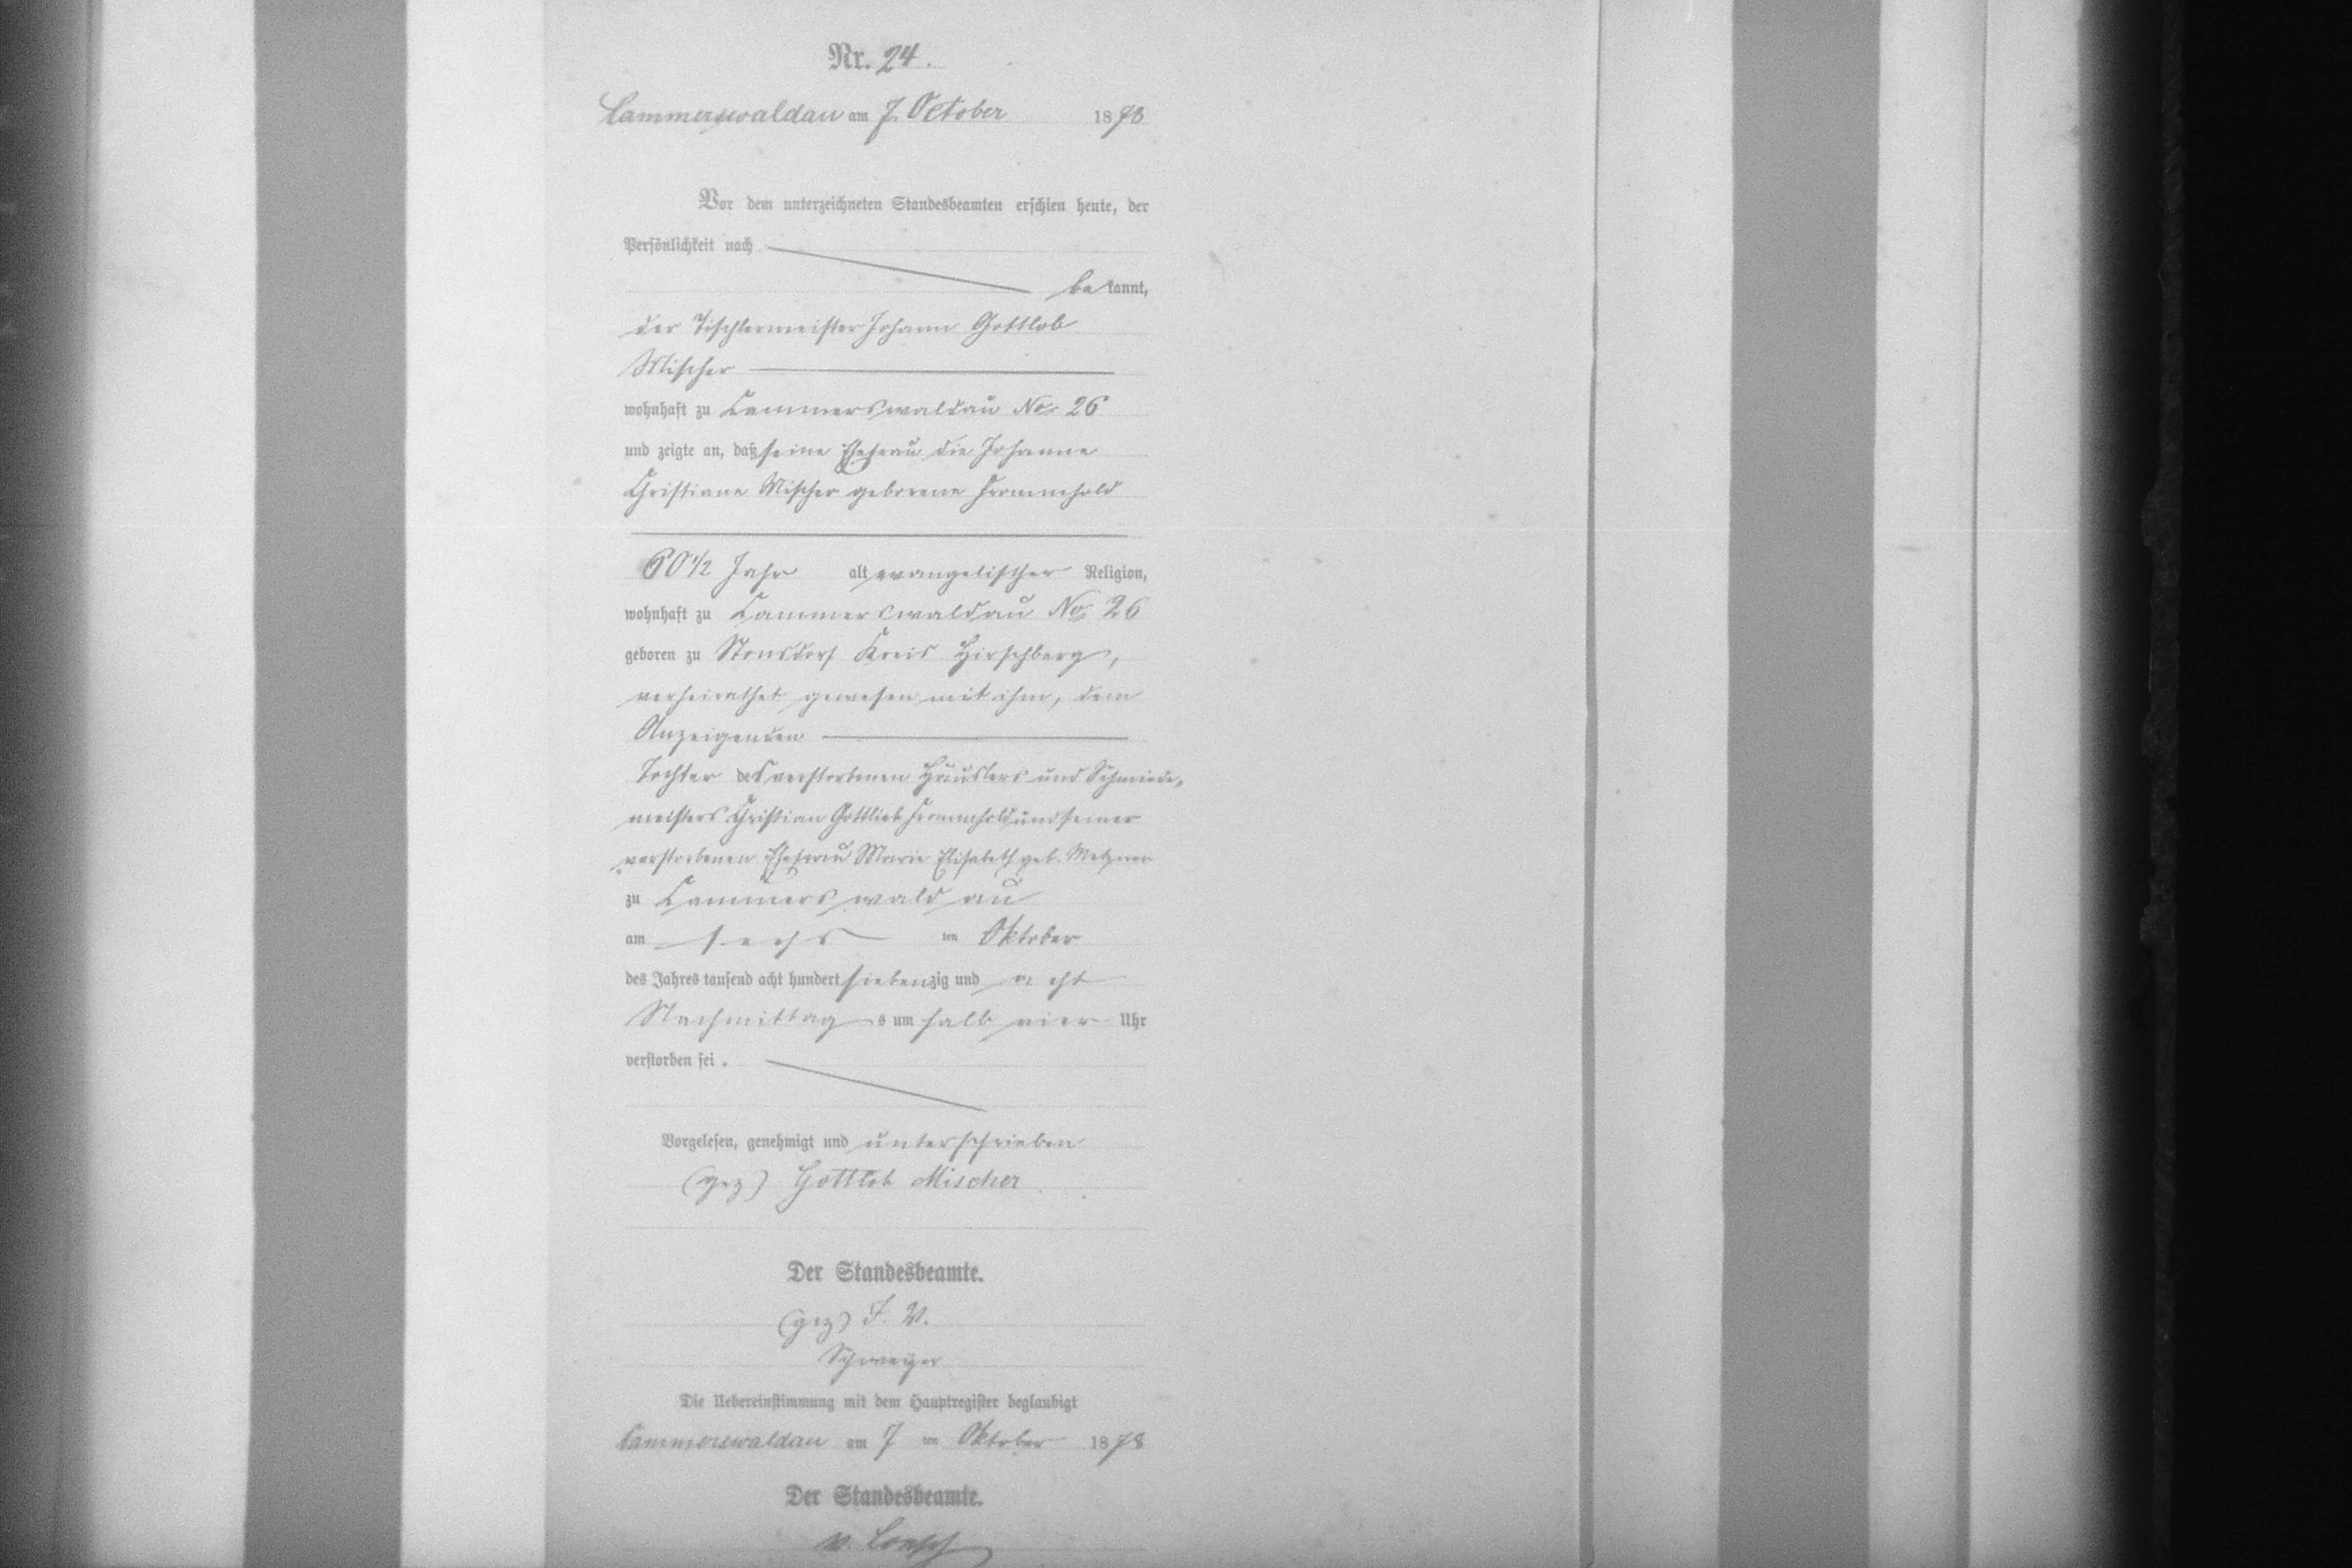 Nr. 24.
Cammerswaldau am 7. October 1878
Vor dem unterzeichneten Standesbeamten erschien heute, der
Persönlichkeit nach
bekannt,
der Tischlermeister Johann Gottlob
Mischer
wohnhaft zu Cammerswaldau No. 26
und zeigte an, daß seine Ehefrau die Johanne
Christiane Mischer geborene Frommhold
60 1/2 Jahr alt, evangelischer Religion,
wohnhaft zu Cammerswaldau No. 26
geboren zu Stonsdorf Kreis Hirschberg,
verheirathet gewesen mit ihm, dem
Anzeigenden
Tochter des verstorbenen Häuslers und Schmiede-
meisters Christian Gottlieb Frommhold und seiner
verstorbenen Ehefrau Marie Elisabeth geb. Metzner
zu Cammerswaldau
am sechs ten Oktober
des Jahres tausend acht hundert siebenzig und acht
Nachmittags um halb vier Uhr
verstorben sei.
Vorgelesen, genehmigt und unterschrieben
(gez) Gottlob Mischer
Der Standesbeamte.
(gez) I. V.
Die Uebereinstimmung mit dem Hauptregister beglaubigt
Cammerswaldau am 7 ten Oktober 1878
Der Standesbeamte.
v.